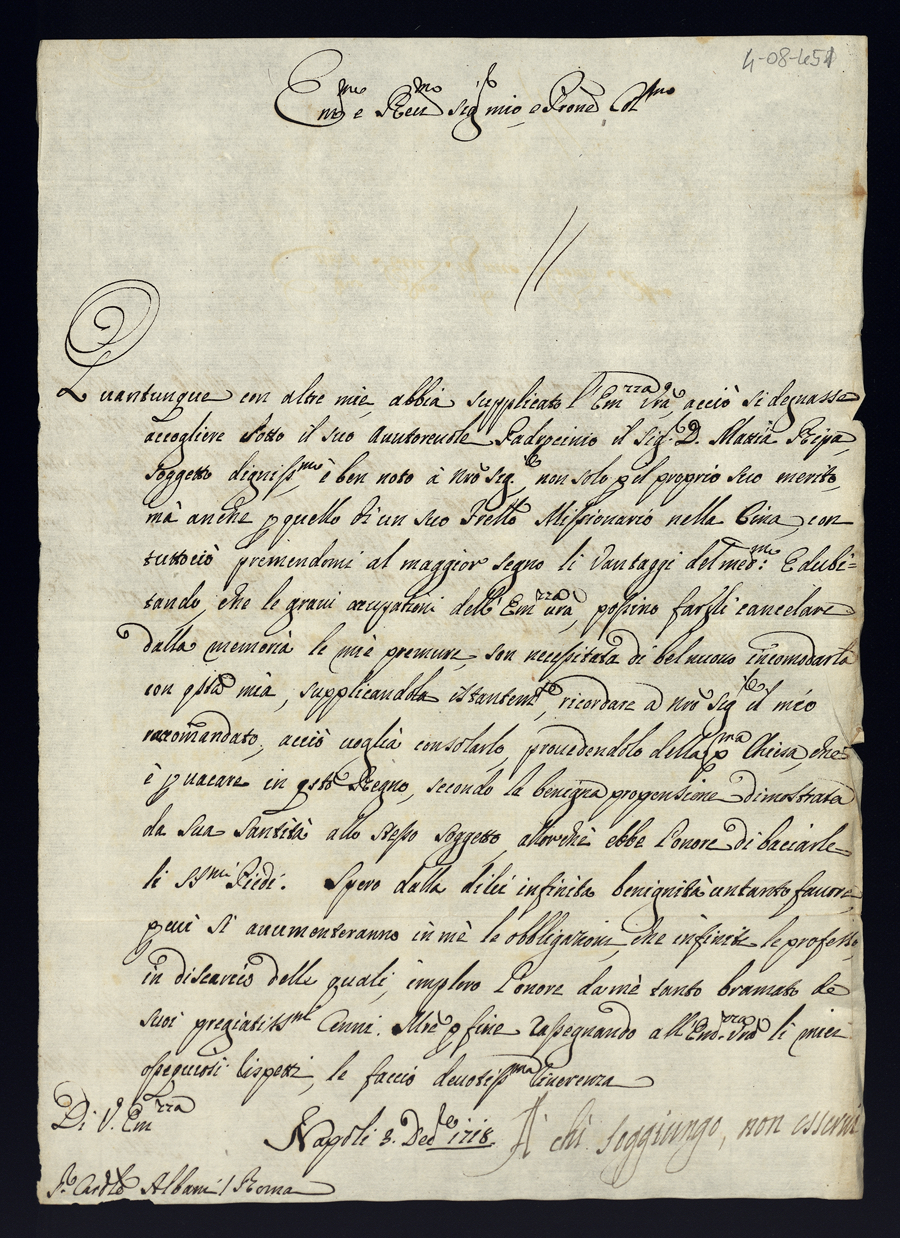 4-08-451
Em.mo e Reu.mo Sig.re mio, e Prone Col.mo
Quantunque con altre mie abbia supplicato l'Em.rza Vrã acciò si degnasse
accogliere sotto il suo Auutoreuole Padrocinio il Sig.r D. Mattia Ripa,
soggetto digniss.mo è ben noto à Nrõ Sig.re non solo p el proprio suo merito,
mà anche p quello di un suo Frello Missionario nella Cina, con
tuttociò premendomi al maggior segno li Vantaggi del med.mo: E dubi=
tando, che le graui occupationi dell'Em.rza Vrã, possino farsli cancelare
dalla memoria le mie premure, son necessitata di bel nuouo incomodarla
con qsta mia, supplicandola istantem.te, ricordare a Nrõ Sig.re il mio
raccomandato, acciò uoglia consolarlo, prouedendolo della p.ma Chiesa, che
è p uacare in qsto Regno, secondo la benigna propensione dimostrata
da Sua Santità allo stesso soggetto, allorchè ebbe l'onore di baciarle
li SS.mi Piedi. Spero dalla di lei infinita benignità un tanto fauore
p cui si aucumenteranno in mè le obbligazioni, che infinite le professo,
in discarico delle quali, imploro l'onore da mè tanto bramato de
suoi pregiatiss.mi Cenni. Mrẽ p fine rassegnando all'Em.rza Vrã li miei
ossequiosi rispetti, le faccio deuotiss.ma riuerenza
Di V. Em.rza
Napoli 3. Dec.re 1718. A chi soggiungo, non essermi
S.r Card.le Albani / Roma